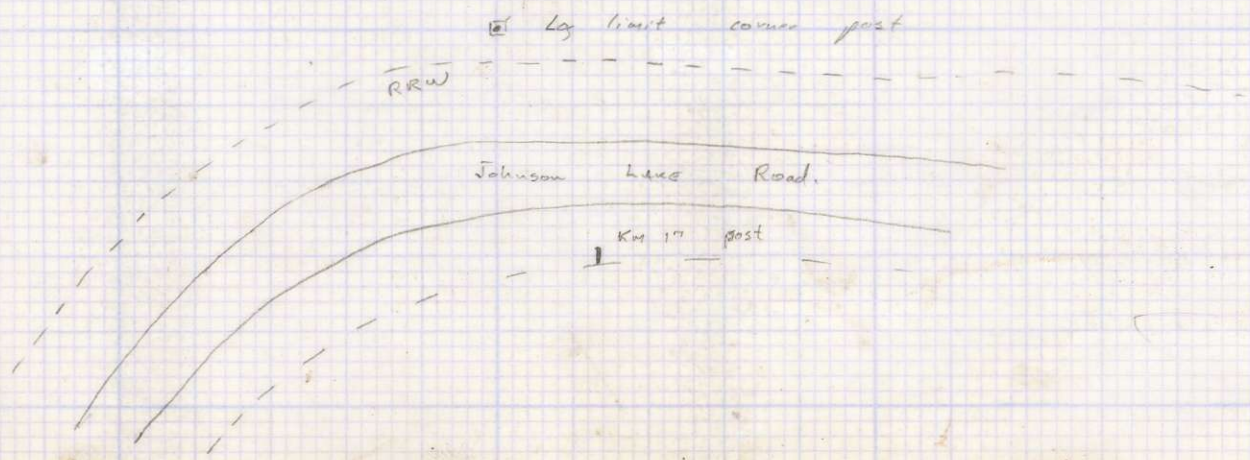 Lg limit corner post
RRW
Johnson Lake Road.
Km 17 post